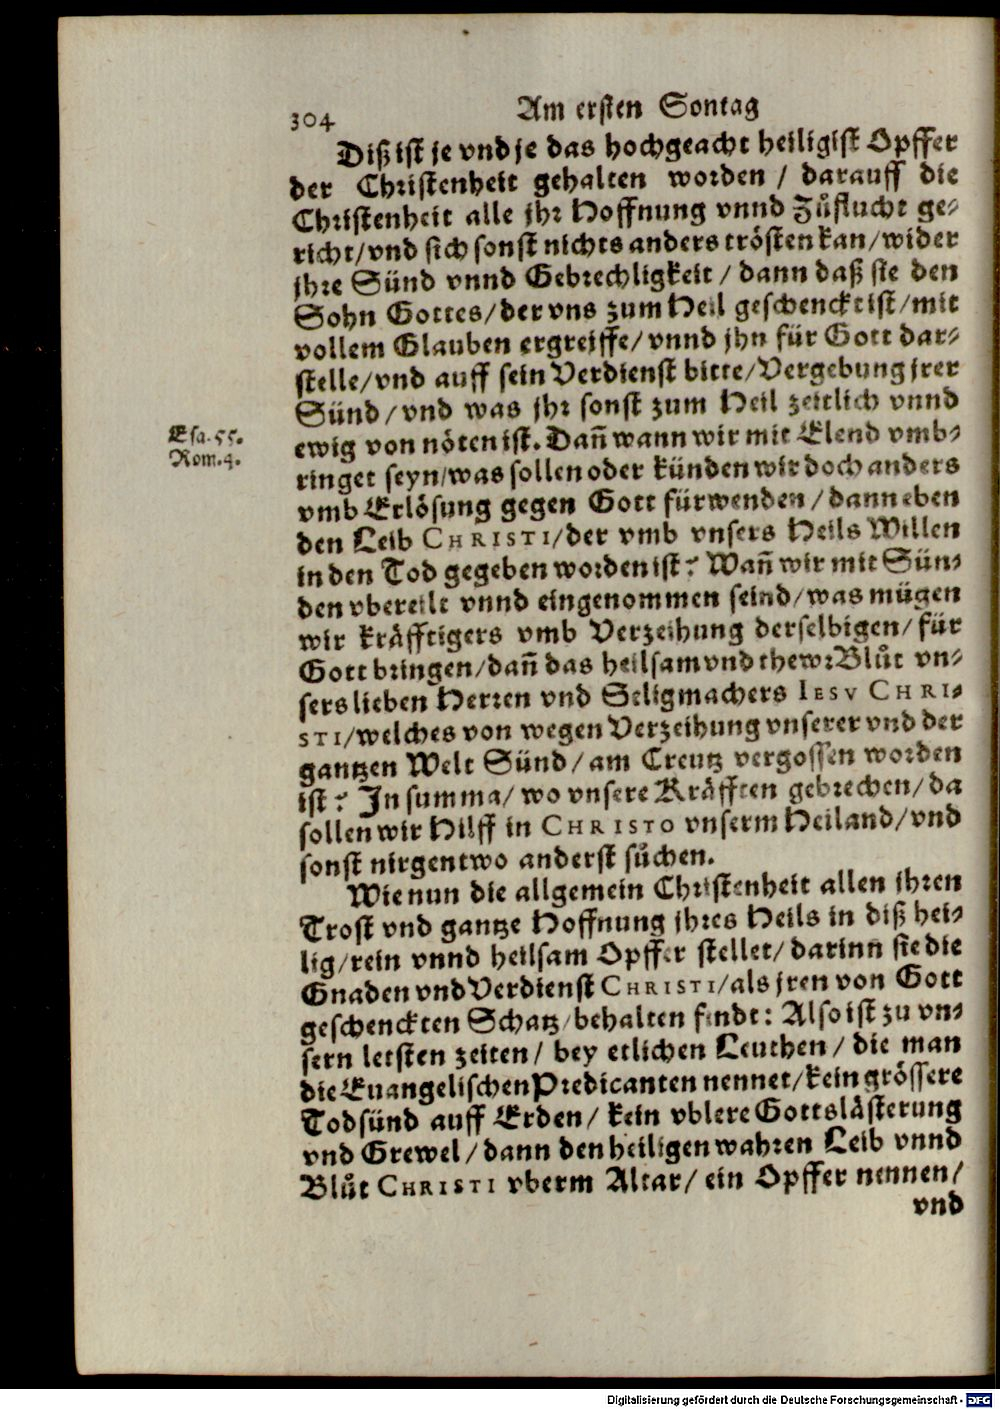 304
Am ersten Sontag
Diß ist je vnd je das hochgeacht heiligist Opffer
der Christenheit gehalten worden / darauff die
Christenheit alle jhr Hoffnung vnnd Zůflucht ge-
richt/vnd sich sonst nichts anders trösten kan/wider
jhre Sünd vnnd Gebrechligkeit / dann daß sie den
Sohn Gottes/der vns zum Heil geschenckt ist/mit
vollem Glauben ergreiffe/vnnd jhn für Gott dar-
stelle/vnd auff sein Verdienst bitte/Vergebung jrer
Sünd/vnd was jhr sonst zum Heil zeitlich vnnd
Esa.55.
ewig von nöten ist. Dañ wann wir mit Elend vmb-
Rom.4.
ringet seyn/was sollen oder künden wir doch anders
vmb Erlösung gegen Gott fürwenden/dann eben
den Leib CHRISTI/der vmb vnsers Heils Willen
in den Tod gegeben worden ist? Wañ wir mit Sün-
den vbereilt vnnd eingenommen seind/was mügen
wir kräfftigers vmb Verzeihung derselbigen/für
Gott bringen/dañ das heilsam vnd thewr Blůt vn-
sers lieben Herren vnd Seligmachers IESV CHRI-
STI/welches von wegen Verzeihung vnserer vnd der
gantzen Welt Sünd/am Creutz vergossen worden
ist? In summa/wo vnsere Kräfften gebrechen/da
sollen wir Hilff in CHRISTO vnserm Heiland/vnd
sonst nirgentwo anderst sůchen.
Wie nun die allgemein Christenheit allen jhren
Trost vnd gantze Hoffnung jhres Heils in diß hei-
lig/rein vnnd heilsam Opffer stellet/darinn sie die
Gnaden vnd Verdienst CHRISTI/als jren von Gott
geschenckten Schatz/behalten findt: Also ist zu vn-
sern letsten zeiten/ bey etlichen Leuthen/ die man
die Euangelischen Predicanten nennet/kein grössere
Todsünd auff Erden/ kein vblere Gottslästerung
vnd Grewel/dann den heiligen wahren Leib vnnd
Blůt CHRISTI vberm Altar/ ein Opffer nennen/
vnd
Digitalisierung gefördert durch die Deutsche Forschungsgemeinschaft - DFG